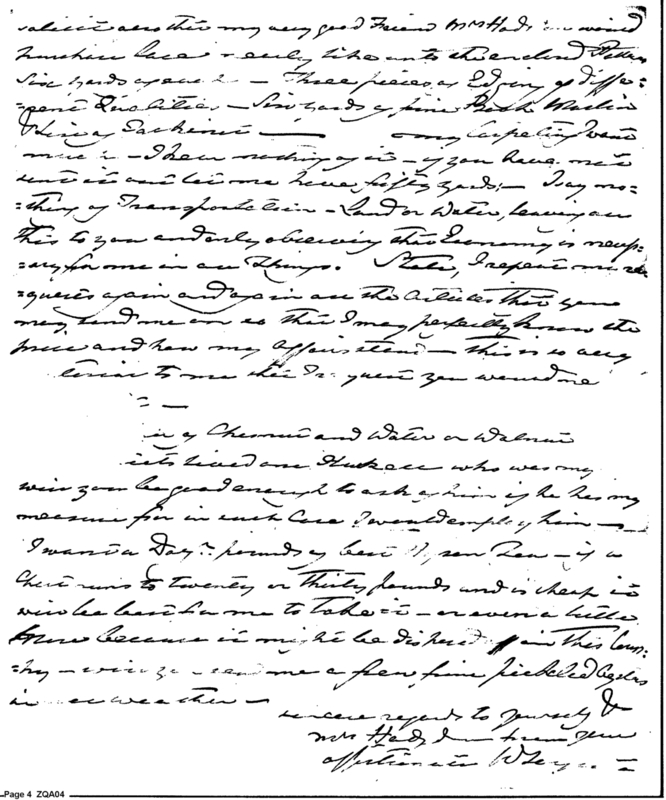 solicit also that my very good Friend Mrs Hodgdon would
purchase lace nearly like unto the enclosed Pattern
Six yards of each — Three pieces of Edging of diffe-
=rent Qualities — Six yards of fine Book Muslin
— my Carpeting I want
much — I hear nothing of it — if you have not
sent it out let me have fifty yards — I say no-
=thing of Transportation — Land or Water, leaving all
this to you and only observing that Economy is necess-
=ary for me in all Things. State, I repeat my re-
=quests again and again all the articles that you
may send me on so that I may perfectly know the
price and how my affairs stand — this is so very
to me that I request you would
of Chesnut and Water or Walnut
lived one who was my
will you be good enough to ask of him if he has my
measure for in such Case I would employ him —
I want a Dozn. pounds of best Hyson Tea — if a
Chest runs to twenty or thirty pounds and is cheap it
will be best for me to take it — or even a little
more because it might be disposed off in this Coun-
=try — will you send me a few fine pickled Oysters
in weather —
sincere regards to yourself &
Mrs Hodgdon from your
affectionate
Page 4 ZQA04